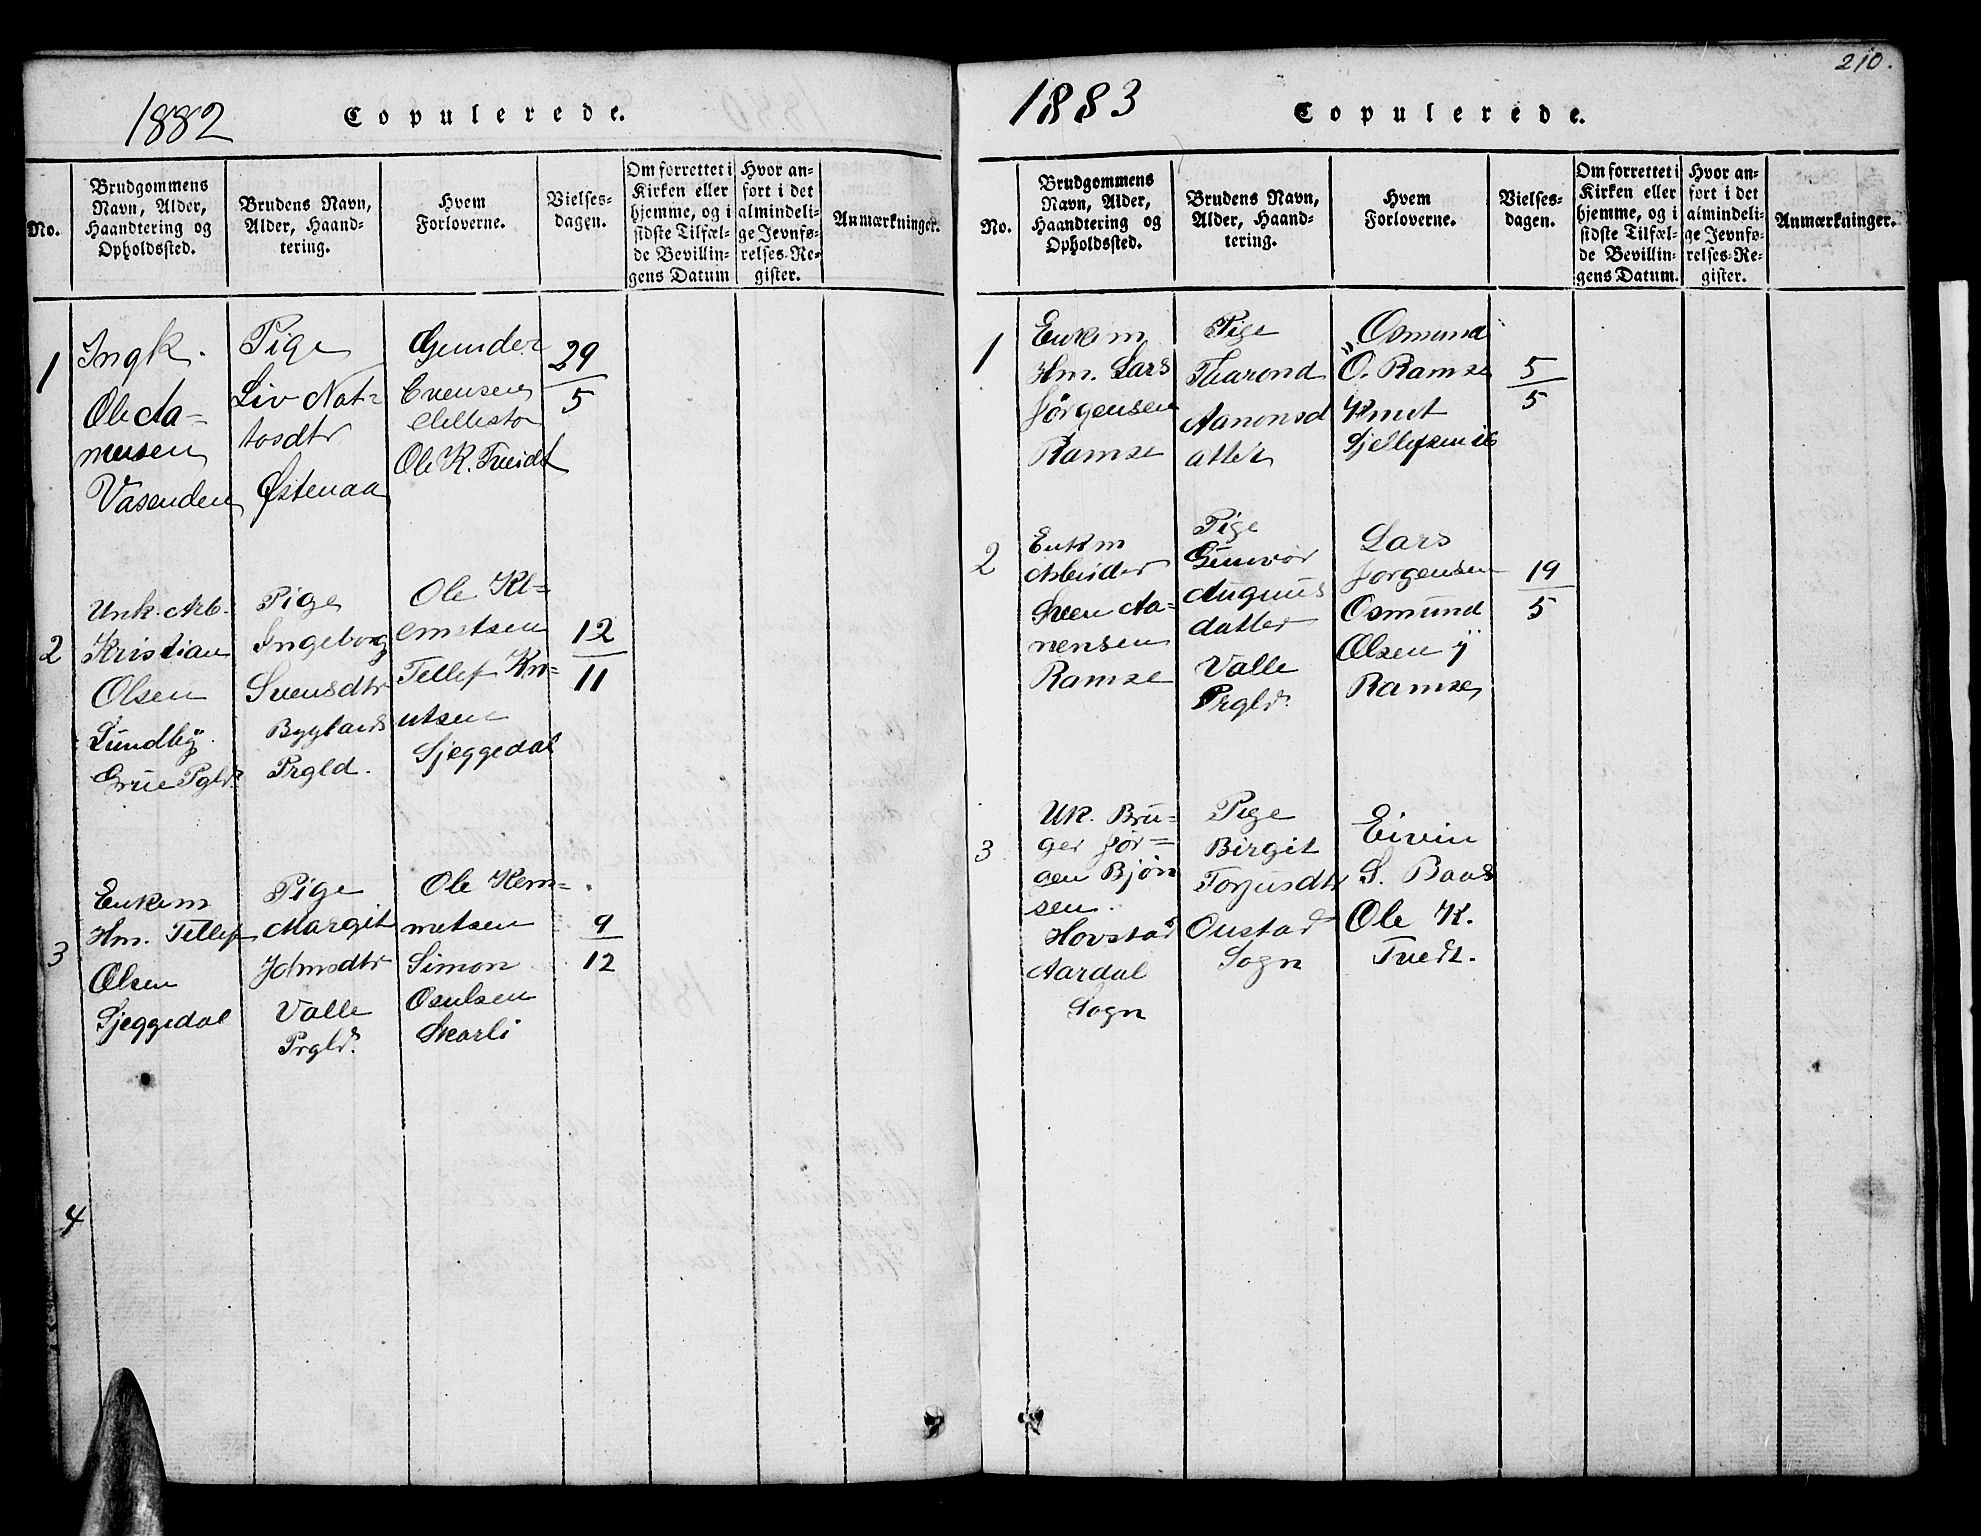 1882
Copulerede.
No.
Brudgommens
Navn, Alder,
Haandtering og
Opholdssted.
Brudens Navn,
Alder, Haand-
tering.
Hvem
Forloverne.
Vielses-
dagen.
Om forrettet i
Kirken eller
hjemme, og i
sidste Tilfæl-
de Bevillin-
gens Datum
Hvor an-
ført i det
almindeli-
ge Jevnfø-
relses-Re-
gister.
Anmærkninger.
1
Ungk.
Ole Aa-
nensen
Vasenden
Pige
Liv Not-
tosdtr
Østenaa
Gunder
Evensen
Ole K. Tveidt
29
5
2
Unk. Arb.
Kristian
Olsen
Lundby
Grue Pgld.
Pige
Ingeborg
Svensdtr
Byglands
Prgld.
Ole Kl-
emetsen
Tellef Kn-
utsen
Sjeggedal
12
11
3
Enkem
Hm. Tellef
Olsen
Sjeggedal
Pige
Margit
Johnsdtr
Valle
Prgld.
Ole Klem-
metsen
Simon
Osulsen
Skarli
9
12
4
210.
1883
Copulerede.
No.
Brudgommens
Navn, Alder,
Haandtering og
Opholdssted.
Brudens Navn,
Alder, Haand-
tering.
Hvem
Forloverne.
Vielses-
dagen.
Om forrettet i
Kirken eller
hjemme, og i
sidste Tilfæl-
de Bevillin-
gens Datum.
Hvor an-
ført i det
almindeli-
ge Jevnfø-
relses-Re-
gister.
Anmærkninger.
1
Enkem
Hm. Lars
Jörgensen
Ramse
Pige
Tharond
Aanonsd
atter
Osmund
O. Ramse
Knut
5
5
2
Enkm
Arbeider
Sven Aa-
nensen
Ramse
Pige
Gunvor
Auguns
datter
Valle
Prgld.
Lars
Jorgensen
Osmund
Olsen ÿ
Ramse
19
5
3
UK. Bru-
ger Jør-
gen Bjøn
sen.
Hovstad
Aardal
Sogn
Pige
Birgit
Torjusdtr
Oustad
Sogn
Eivin
S. Baas
Ole K.
Tvedt.